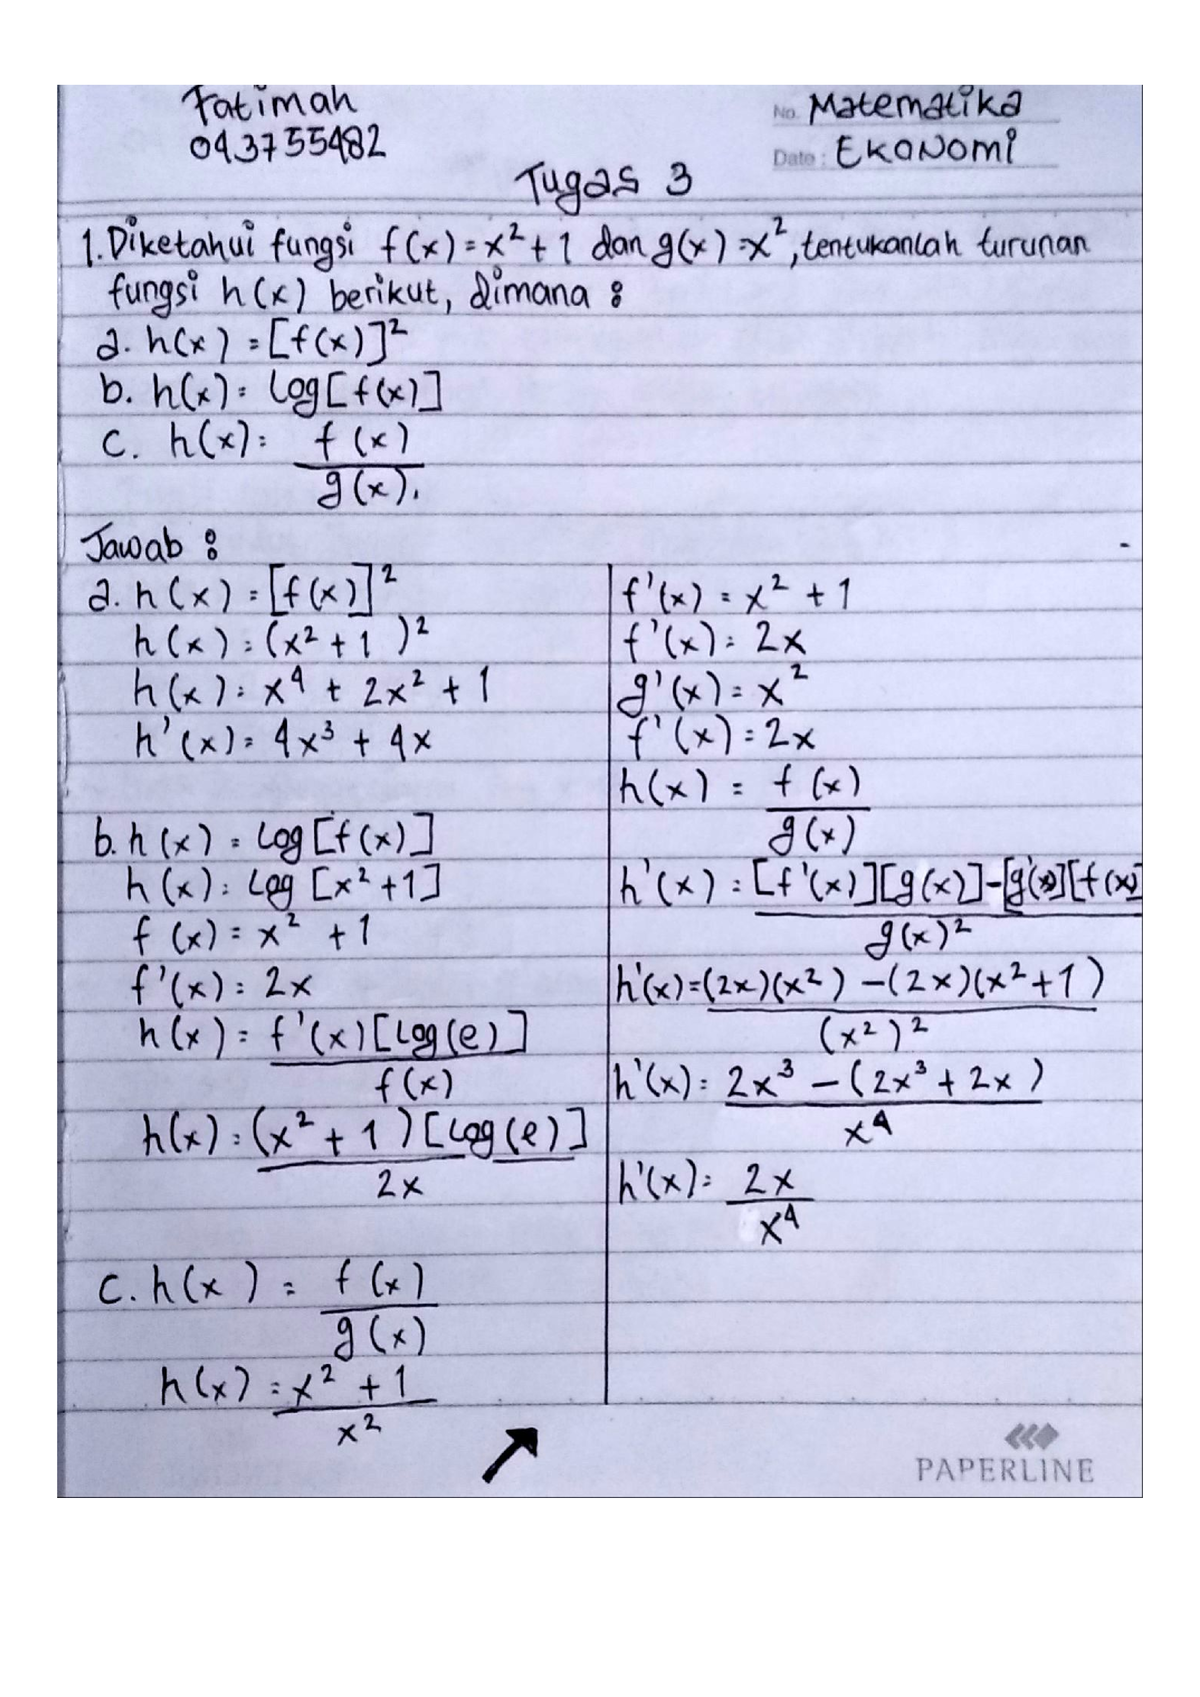 Fatimah
043755482
No. Matematika
Date : Ekonomi
Tugas 3
1. Diketahui fungsi f(x) = x² + 1 dan g(x) = x², tentukanlah turunan
fungsi h(x) berikut, dimana :
a. h(x) = [f(x)]²
b. h(x) = log[f(x)]
c. h(x) = f(x)
g(x).
Jawab :
a. h(x) = [f(x)]²
h(x) = (x² + 1)²
h(x) = x⁴ + 2x² + 1
h'(x) = 4x³ + 4x
b. h(x) = Log [f(x)]
h(x) = Log [x² + 1]
f(x) = x² + 1
f'(x) = 2x
h(x) = f'(x) [Log(e)]
f(x)
h(x) = (x² + 1) [Log(e)]
2x
c. h(x) = f(x)
g(x)
h(x) = x² + 1
x²
f'(x) = x² + 1
f'(x) = 2x
g'(x) = x²
f'(x) = 2x
h(x) = f(x)
g(x)
h'(x) = [f'(x)][g(x)] - [g'(x)][f(x)]
g(x)²
h'(x) = (2x)(x²) - (2x)(x² + 1)
(x²)²
h'(x) = 2x³ - (2x³ + 2x)
x⁴
h'(x) = 2x
x⁴
PAPERLINE